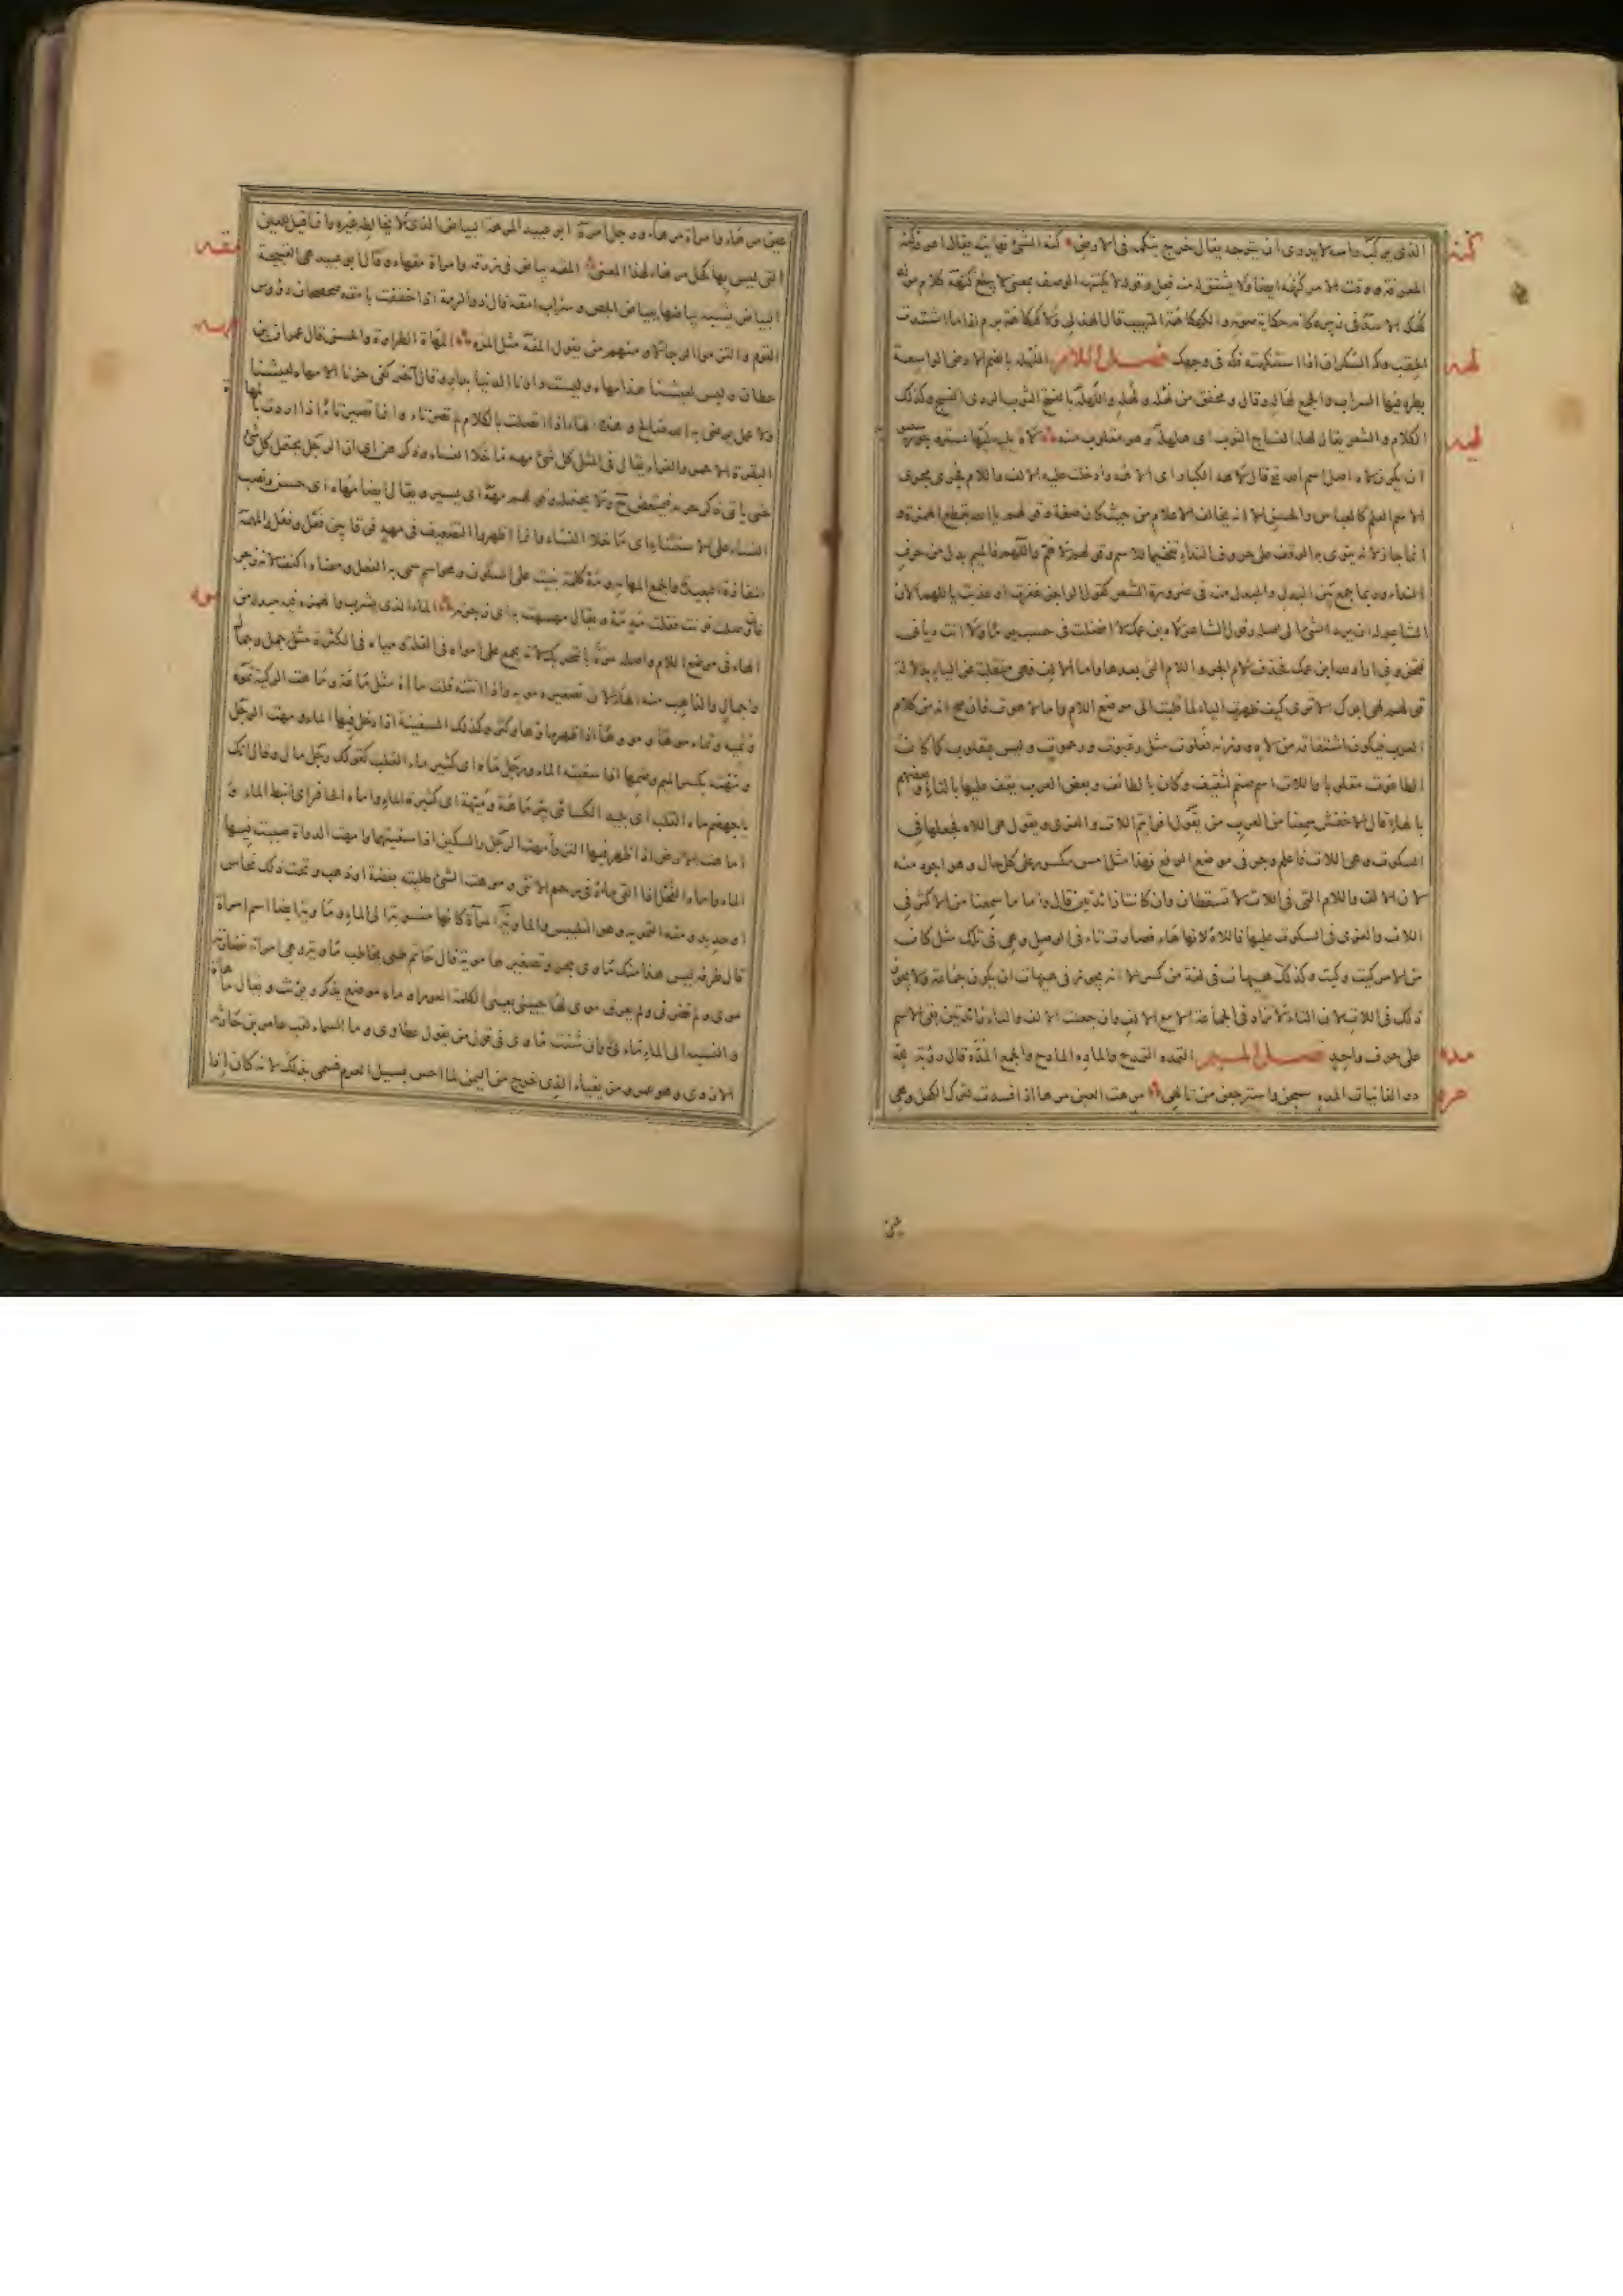 كنه
الذى يركب راسه لا يدرى اين يتوجه يقال خرج يتكمه فى الارض كنه الشئ نهايته يقال اعرفه كنه
المعرفة ووقت الامر كنهه ايضا ولا يشتق منه فعل وقولهم لا يكتنهه الوصف بمعنى لا يبلغ كنهه كلام مولد
كهكه الاسد فى زئيره كانه حكاية صوته والكهكاهة المتهيب قال الهذلى ولا كهكاهة برم اذا ما اشتدت
لهله
الحقب وكه السكران اذا استنكهته فكه فى وجهك فصل اللام اللهله بالضم الارض الواسعة
يطرد فيها السراب والجمع لهاله وقال ومخفق من لهله ولهله واللهله بالفتح الثوب الردى النسج وكذلك
ليه
الكلام والشعر يقال لهله النساج الثوب اى هلهله وهو مقلوب منه لاه يليه ليها تستر وجوز سيبويه
ان يكون لاه اصل اسم الله تع قال لاهه الكبار اى الاهه وادخلت عليه الالف واللام فجرى مجرى
الاسم العلم كالعباس والحسن الا انه يخالف الاعلام من حيث كان صفة وقولهم يا الله بقطع الهمزة
انما جاز لانه ينوى به الوقف على حرف النداء تفخيما للاسم وقولهم لاهم واللهم فالميم بدل من حرف
النداء وربما جمع بين البدل والمبدل منه فى ضرورة الشعر كقول الراجز غفرت او عذبت يا اللهما لان
الشاعر له ان يرد الشئ الى اصله وقول الشاعر لاه ابن عمك لا افضلت فى حسب عنى ولا انت ديانى
فتخزونى اراد لله ابن عمك فحذف لام الجر واللام التى بعدها واما الالف فهى منقلبة عن الياء بدلالة
قولهم لهى ابوك الا ترى كيف ظهرت الياء لما قلبت الى موضع اللام واما لاهوت فان صح انه من كلام
العرب فيكون اشتقاقه من لاه ووزنه فعلوت مثل رغبوت ورحموت وليس بمقلوب كما كان
الطاغوت مقلوبا واللات اسم صنم لثقيف وكان بالطائف وبعض العرب يقف عليها بالتاء وبعضهم
بالهاء قال الاخفش سمعنا من العرب من يقول افرايتم اللات والعزى ويقول هى اللاه فجعلها فى
السكوت وهى اللات فاعلم وجر فى موضع الرفع فهذا مثل امس مكسور على كل حال وهو اجود منه
لان الالف واللام التى فى اللات لا تسقطان وان كانتا زائدتين قال واما ما سمعنا من الاكثر فى
اللات والعزى فى السكوت عليها فاللاه لانها هاء فصارت تاء فى الوصل وهى فى تلك مثل كان
من الامر كيت وكيت وكذلك هيهات فى لغة من كسر الا انه يجوز فى هيهات ان يكون جماعة ولا يجوز
ذلك فى اللات لان التاء لا تزاد فى الجماعة الا مع الالف وان جعلت الالف والتاء زائدتين بقى الاسم
مده
على حرف واحد فصل الميم التمده التمدح والماده المادح والجمع المده قال رؤبة لله
مره
در الغانيات المده سبحن واسترجعن من تالهى مرهت العين مرها اذا فسدت لترك الكحل وهى
عين مرهاء وامراة مرهاء ورجل امره ابو عبيد المرهة البياض الذى لا يخالطه غيره وانما قيل للعين
مقه
التى ليس بها كحل مرهاء لهذا المعنى المقه بياض فى زرقة وامراة مقهاء وقال ابو عبيد هى القبيحة
البياض يشبه بياضها بياض الجص وسراب امقه قال ذو الرمة اذا خفقت بامقه صحصحان رؤوس
مهه
القوم والتزموا الرحالا ومنهم من يقول المقه مثل المره المهاه الطراوة والحسن قال عمران بن
حطان وليس لعيشنا هذا مهاه وليست دارنا الدنيا بدار وقال اخر كفى حزنا الا مهاه لعيشنا
ولا عمل يرضى به الله صالح وهذه الهاء اذا اتصلت بالكلام لم تصر تاء وانما تصير تاء اذا اردت بالمهاة
البقرة الاحمر والفراء يقال فى المثل كل شئ مهه ما خلا النساء وذكرهن اى ان الرجل يحتمل كل شئ
حتى ياتى ذكر حرمه فيمتعض ح ولا يحتمله وقولهم مهه اى يسير ويقال ايضا مهاه اى حسن ونصب
النساء على الاستثناء اى ما خلا النساء وانما اظهروا التضعيف فى مهه فرقا بين فعل وفعل والمهمه
المفازة البعيدة والجمع المهامه ومه كلمة بنيت على السكون وهو اسم سمى به الفعل ومعناه اكفف لانه زجر
موه
فان وصلت نونت فقلت مه مه ويقال مهمهت به اى زجرته الماء الذى يشرب والهمزة فيه مبدلة من
الهاء فى موضع اللام واصله موه بالتحريك لانه يجمع على امواه فى القلة ومياه فى الكثرة مثل جمل وجمال
واجمال والذاهب منه الهاء لان تصغيره مويه واذا انثته قلت ماءة مثل ماعة وماهت الركية تموه
وتميه وتماه موها ومووها اذا ظهر ماؤها وكثر وكذلك السفينة اذا دخل فيها الماء ومهت الرجل
ومهته بكسر الميم وضمها اذا سقيته الماء ورجل ماه اى كثير ماء القلب كقولك رجل مال وقال انك
يا جهضم ماه القلب اى جبـ الكسائى بئر ماهة وميهة اى كثيرة الماء واماه الحافر اى انبط الماء و
اماهت الارض اذا ظهر فيها النز وامهت الرجل والسكين اذا سقيتهما وامهت الدواة صببت فيها
الماء واماه الفحل اذا القى ماءه فى رحم الانثى وموهت الشئ طليته بفضة او ذهب وتحت ذلك نحاس
او حديد ومنه التمويه وهو التلبيس والماوية المرآة كانها منسوبة الى الماء وماوية ايضا اسم امراة
قال طرفة ليس هذا منك ماوى بحر وتصغيرها موية قال حاتم طيى يخاطب ماوية وهى امراة فضارته
موى ولم تضرنى ولم يعرق موى لها جبينى يعنى الكلمة العوراء وماه موضع يذكر ويؤنث ويقال ماءه
والنسبة الى الماء مائى وان شئت ماوى فى قول من يقول عطاوى وماء السماء لقب عامر بن حارثة
الازدى وهو عمرو مزيقياء الذى خرج من اليمن لما احس بسيل العرم فسمى بذلك لانه كان اذا